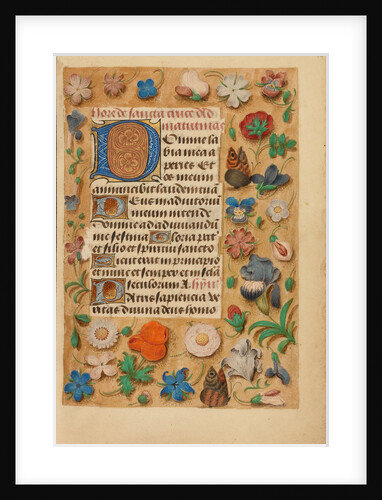 Hore de sancta cruce Ad
matutinas
Domine la
bia mea a
peries Et
os meum
annunciabit laudem tuam
Deus in adiutorium
meum intende
Domine ad adiuuandu
me festina Gloria pat
et filio et spiritui sancto
Sicut erat in principio
et nunc et semper et in secula
seculorum A hymn
Patris sapiencia ve
ritas diuina deus homo